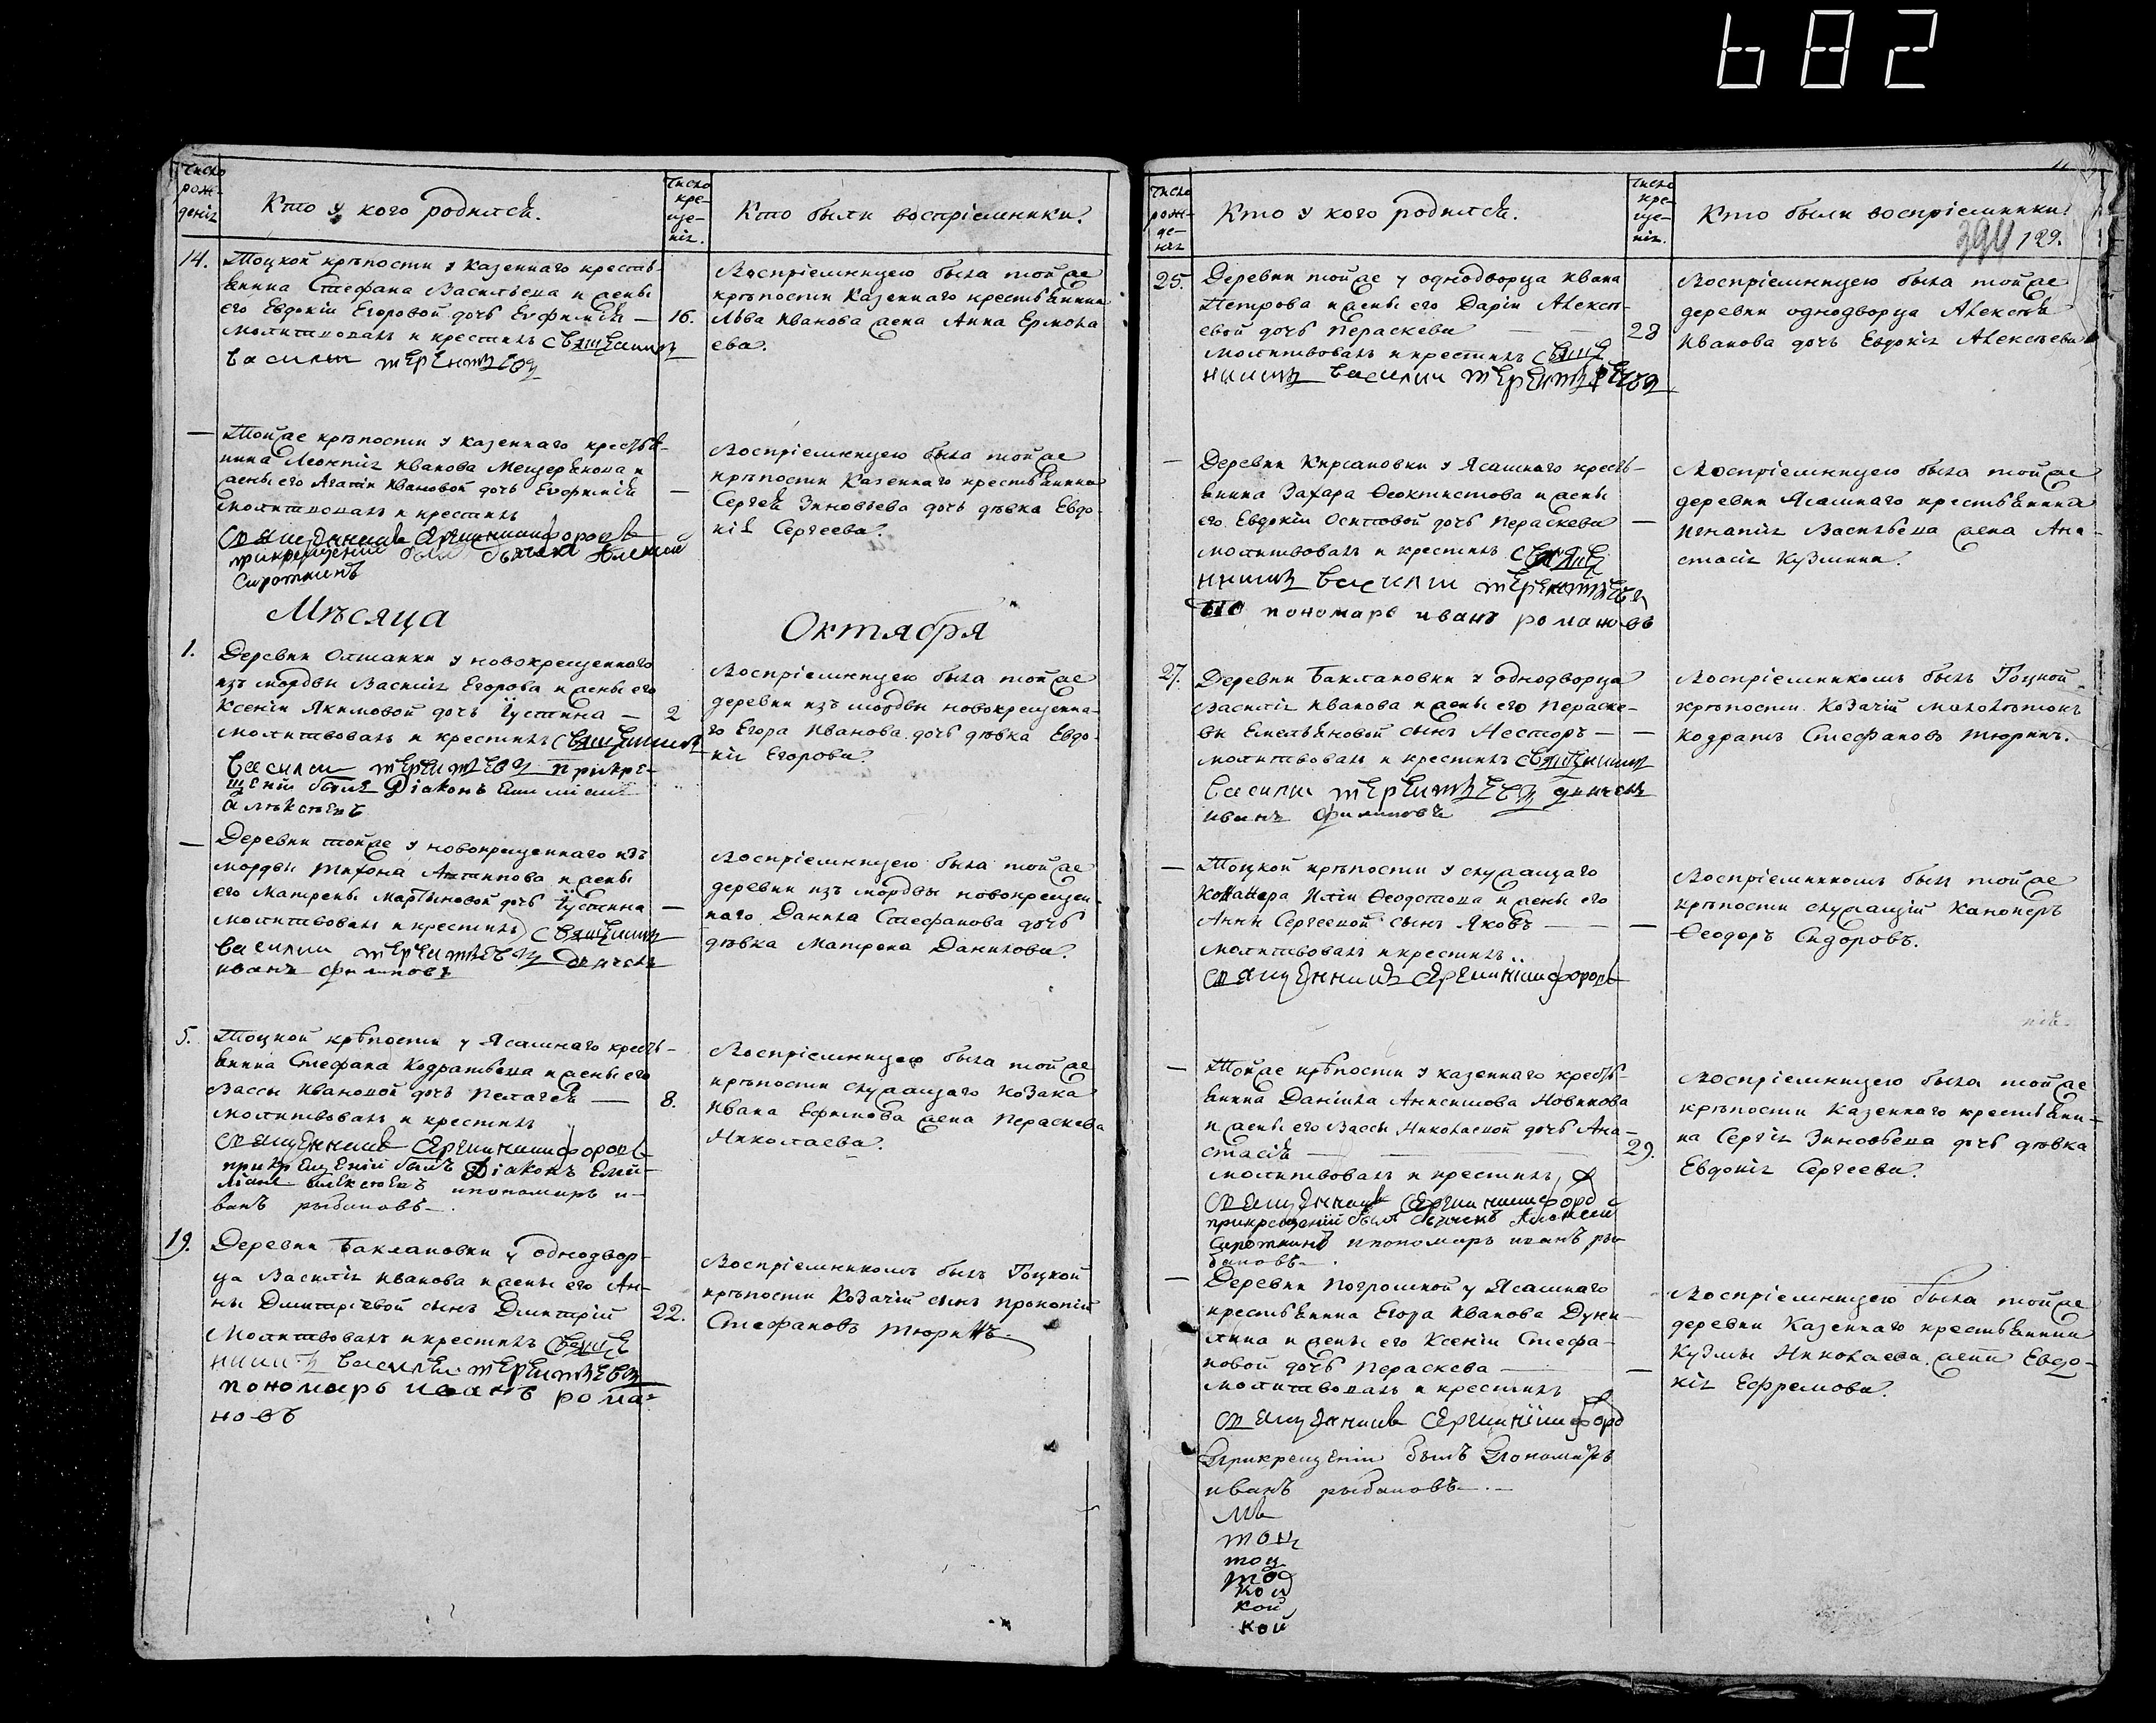 682
Число рож-деніѧ
Кто у кого родился.
Число кре-ще-нія.
Кто были воспріемники.
14.
Тоцкой крѣпости у казеннаго кресть-
янина Стефана Васильева и жены
его Евдокіи Егоровой дочь Евфимія —
16.
молитвовалъ и крестилъ священникъ
василий терентьевъ
Воспріемницею была той же
крѣпости казеннаго крестьянина
Льва Иванова жена Анна Ермола
ева.
— Той же крѣпости у казеннаго крестья-
нина Леонтія Иванова Мещерякова и
жены его Агапіи Ивановой дочь Евфимія
—
молитвовалъ и крестилъ
священникъ Сергий никифоровъ
прикрещении былъ дьячекъ Алексей
Сироткинъ
Воспріемницею была той же
крѣпости казеннаго крестьянина
Сергея Зиновьева дочь дѣвка Евдо-
кія Сергеева.
Мѣсяца
Октября
1.
Деревни Олшанки у новокрещеннаго
изъ мордвы Василія Егорова и жены его
Ксеніи Якимовой дочь Іустина —
2
молитвовалъ и крестилъ священникъ
василии терентьевъ прикре-
щеніи былъ Діаконъ Емиліанъ
алѣксѣевъ
Воспріемницею была той же
деревни изъ мордвы новокрещенна-
го Егора Иванова дочь дѣвка Евдо-
кія Егорова.
— Деревни той же у новокрещеннаго изъ
мордвы Тихона Антипова и жены
его Матрены Мартыновой дочь Іустина —
молитвовалъ и крестилъ священникъ
василии терентьевъ дьячекъ
иванъ филиповъ
Воспріемницею была той же
деревни изъ мордвы новокрещен-
наго Данила Стефанова дочь
дѣвка Матрона Данилова.
5.
Тоцкой крѣпости у Ясашнаго кресть-
янина Стефана Кодратьева и жены его
Вассы Ивановой дочь Пелагея —
8.
молитвовалъ и крестилъ
священникъ Сергии никифоровъ
прикрещеніи былъ Діаконъ Еми-
ліанъ алексѣевъ ипономарь и-
ванъ рыбаковъ.
Воспріемницею была той же
крѣпости служащаго козака
Ивана Ефимова жена Параскева
Николаева.
19.
Деревни Баклановки у однодвор-
ца Василія Иванова и жены его Ан-
ны Дмитріевой сынъ Дмитрій
22.
молитвовалъ и крестилъ свяще
нникъ василеи терентьевъ
пономарь иванъ рома-
новъ
Воспріемникомъ былъ Тоцкой
крѣпости козачій сынъ прокопій
Стефановъ Тюринъ.
Число рож-де-нія
Кто у кого родился.
Число кре-ще-нія.
Кто были воспріемники.
394
129.
25.
Деревни той же у однодворца Ивана
Петрова и жены его Даріи Алексѣ-
евой дочь Параскева
28
молитвовалъ и крестилъ свяще
нникъ василии терентьевъ
Воспріемницею была той же
деревни однодворца Алексѣя
Иванова дочь Евдокія Алексѣева
— Деревни Кирсановки у Ясашнаго кресть-
янина Захара Ѳеоктистова и жены
его Евдокіи Осиповой дочь Параскева —
молитвовалъ и крестилъ свяще
нникъ василии терентьевъ
пономарь иванъ романовъ
Воспріемницею была той же
деревни Ясашнаго крестьянина
Игнатія Васильева жена Ана-
стасія Кузмина.
27.
Деревни Баклановки у однодворца
Василія Иванова и жены его Параске-
вы Емельяновой сынъ Несторъ — —
молитвовалъ и крестилъ священникъ
василии терентьевъ дьячекъ
иванъ филиповъ
Воспріемникомъ былъ Тоцкой
крѣпости козачій малолѣтокъ
Кодратъ Стефановъ Тюринъ.
— Тоцкой крѣпости у служащаго
Конанера Иліи Ѳеодотова и жены его
Анны Сергеевой сынъ Яковъ — — —
молитвовалъ и крестилъ
священникъ Сергии никифоровъ
Воспріемникомъ былъ той же
крѣпости служащій Канонеръ
Ѳеодоръ Сидоровъ.
— Той же крѣпости у казеннаго кресть-
янина Даніила Анисимова Новикова
и жены его Вассы Николаевой дочь Ана-
стасія —
29.
молитвовалъ и крестилъ
священникъ Сергии никифоровъ
прикрещеніи былъ дьячекъ Алексей
Сироткинъ ипономарь иванъ ры-
баковъ.
Воспріемницею была той же
крѣпости казеннаго крестьяни-
на Сергія Зиновьева дочь дѣвка
Евдокія Сергеева.
— Деревни Погромной у Ясашнаго
крестьянина Егора Иванова Дуни-
лина и жены его Ксеніи Стефа-
новой дочь Параскева —
молитвовалъ и крестилъ
священникъ Сергии никифоровъ
Прикрещеніи былъ Пономарь
иванъ рыбаковъ.
Воспріемницею была той же
деревни казеннаго крестьянина
Кузмы Николаева жена Евдо-
кія Ефремова.
тоц
тоц
кой
кой
кой